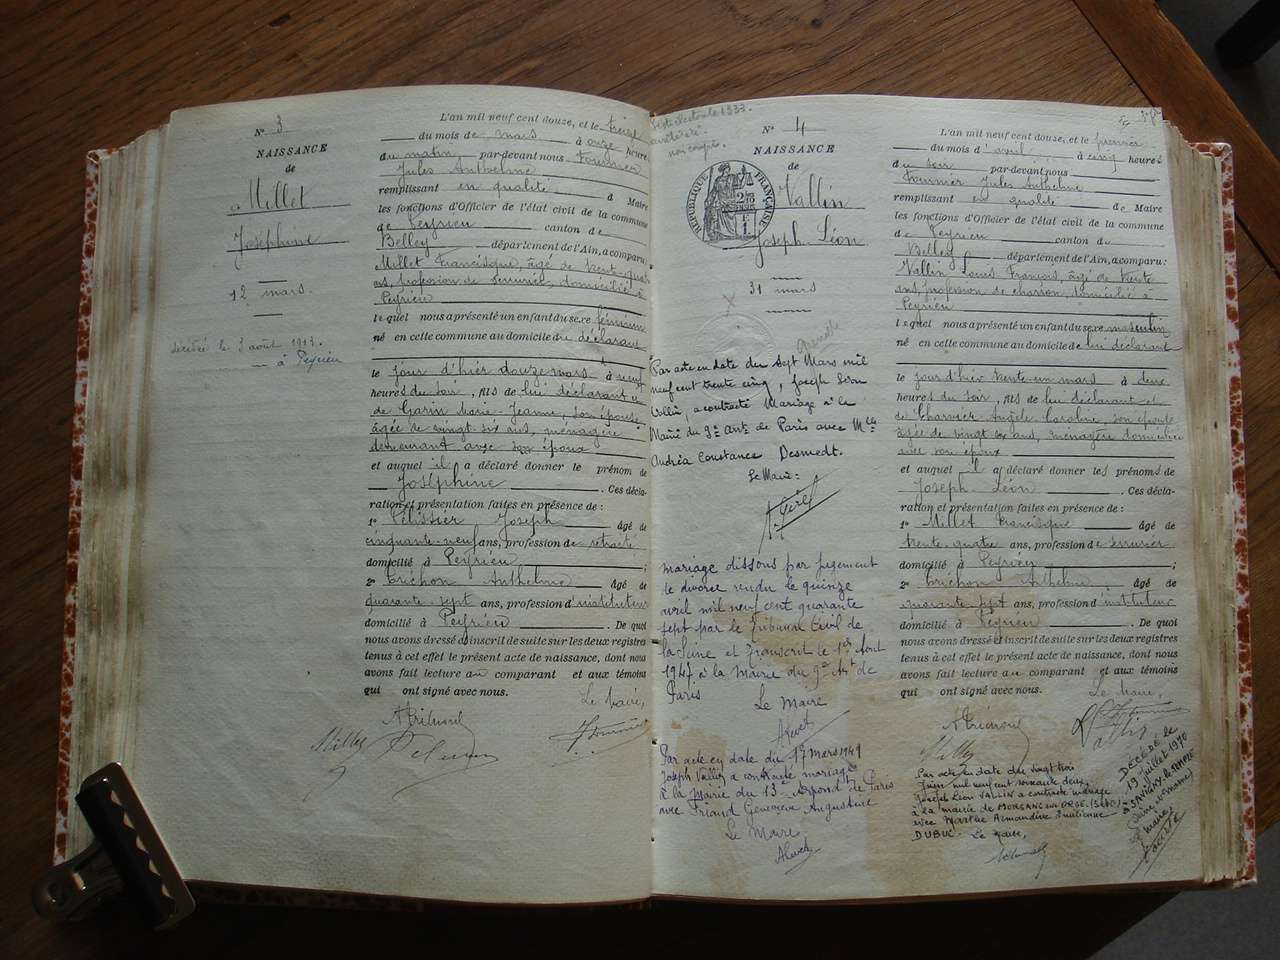 N° 3
NAISSANCE
de
Millet
Joséphine
12 mars
décédée le 3 août 1913.
à Peyrieu
L'an mil neuf cent douze, et le treize
du mois de mars à onze heures
du matin par-devant nous Fournier
Jules Anthelme
remplissant en qualité d Maire
les fonctions d'Officier de l'état civil de la commune
de Peyrieu canton de
Belley département de l'Ain, a comparu:
Millet Francisque, âgé de trente-quatre
ans, profession de serrurier, domicilié à
Peyrieu
lequel nous a présenté un enfant du sexe féminin
né en cette commune au domicile du déclarant
le jour d'hier douze mars à neuf
heures du soir, fils de lui déclarant et
de Garin Marie-Jeanne, son épouse
âgée de vingt six ans, ménagère
demeurant avec son époux
et auquel il a déclaré donner le prénom de
Joséphine Ces décla-
ration et présentation faites en présence de :
1° Pélissier Joseph âgé de
cinquante-neuf ans, profession de retraité
domicilié à Peyrieu ;
2° Tréchon Anthelme âgé de
quarante-sept ans, profession d'instituteur
domicilié à Peyrieu . De quoi
nous avons dressé et inscrit de suite sur les deux registres
tenus à cet effet le présent acte de naissance, dont nous
avons fait lecture au comparant et aux témoins
qui ont signé avec nous.
Le Maire,
Millet
N° 4
NAISSANCE
de
Vallin
Joseph-Léon
31 mars
RÉPUBLIQUE FRANÇAISE
non compris.
Par acte en date du sept Mars mil
neuf cent trente cinq, Joseph Léon
Vallin, a contracté Mariage à la
Mairie du 9e Arrt de Paris avec Mlle
Andréa Constance Desmedt.
Le Maire:
mariage dissous par jugement
de divorce rendu le quinze
avril mil neuf cent quarante
sept par le Tribunal Civil de
la Seine et transcrit le 1er Aout
1947 à la Mairie du 9e Art de
Paris
Le Maire
Par acte en date du 17 mars 1949
Joseph Vallin a contracté mariage
à la Mairie du 13e Arrond de Paris
avec Friand Geneviève Augustine
Le Maire
L'an mil neuf cent douze, et le premier
du mois d'avril à cinq heures
du soir par-devant nous
Fournier Jules Anthelme
remplissant en qualité de Maire
les fonctions d'Officier de l'état civil de la commune
de Peyrieu canton de
Belley département de l'Ain, a comparu:
Vallin Louis François, âgé de trente
ans, profession de charron domicilié à
Peyrieu
lequel nous a présenté un enfant du sexe masculin
né en cette commune au domicile de lui déclarant
le jour d'hier trente-un mars à deux
heures du soir, fils de lui déclarant et
de Charvier Angèle Caroline, son épouse
âgée de vingt six ans, ménagère domiciliée
avec son époux
et auquel il a déclaré donner les prénoms de
Joseph-Léon . Ces décla-
ration et présentation faites en présence de :
1° Millet Francisque âgé de
trente-quatre ans, profession de serrurier
domicilié à Peyrieu ;
2° Tréchon Anthelme âgé de
quarante sept ans, profession d'instituteur
domicilié à Peyrieu . De quoi
nous avons dressé et inscrit de suite sur les deux registres
tenus à cet effet le présent acte de naissance, dont nous
avons fait lecture au comparant et aux témoins
qui ont signé avec nous.
Le Maire,
Millet
Vallin
Par acte en date du vingt trois
Juin mil neuf cent soixante deux,
Joseph Léon VALLIN a contracté mariage
à la mairie de MORSANG sur ORGE (S&O)
avec Marthe Armandine Emilienne
DUBUC. Le Maire,
DÉCÉDÉ le
19 juillet 1970
à SAVIGNY-le-TEMPLE
Seine et Marne
Le maire,